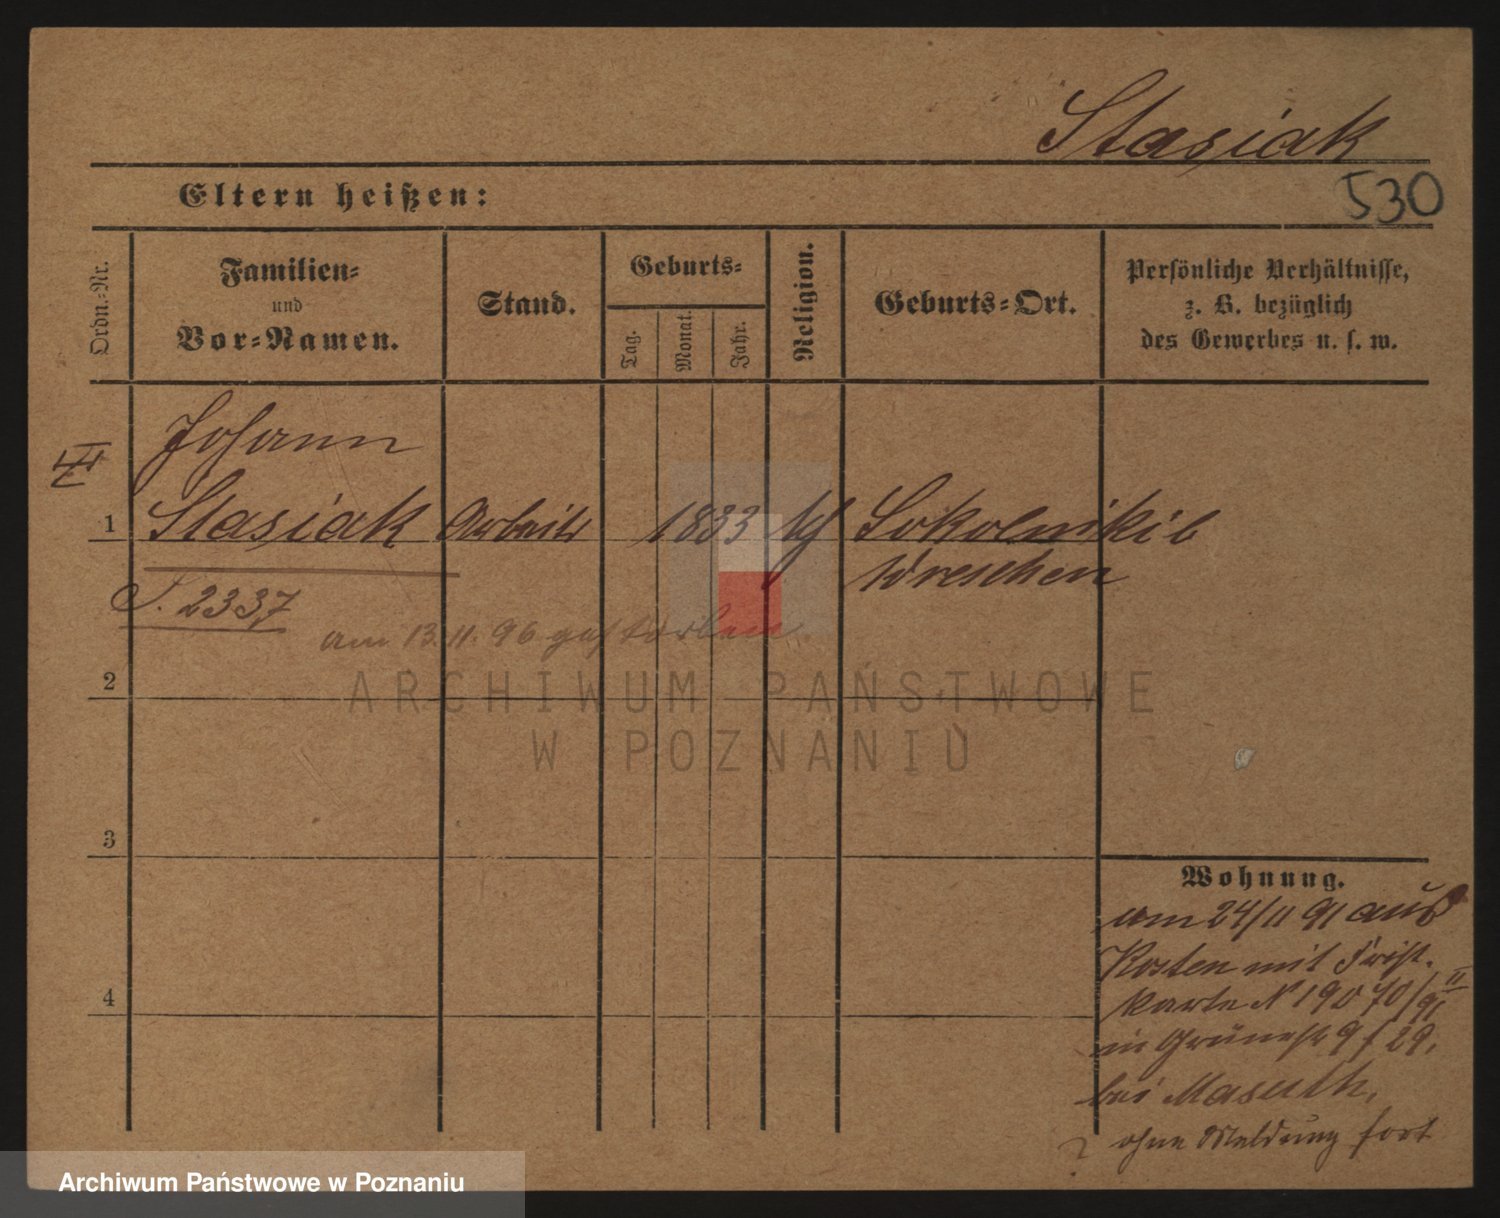 Stasiak
530
Eltern heißen:
Ordn.-Nr.
Familien-
und
Vor-Namen.
Stand.
Geburts-
Tag.
Monat.
Jahr.
Religion.
Geburts-Ort.
Persönliche Verhältnisse,
z. B. bezüglich
des Gewerbes u. s. w.
Johann
III
1 Stasiak Arbeiter 1833 Sokolniki b
Wreschen
S. 2337
am 13.11.96 gestorben
2
ARCHIWUM PAŃSTWOWE
W POZNANIU
3
Wohnung.
am 24/11 91 aus
Kosten mit
4
karte N 19070/91
in
bei Maseuth,
? ohne Meldung fort
Archiwum Państwowe w Poznaniu